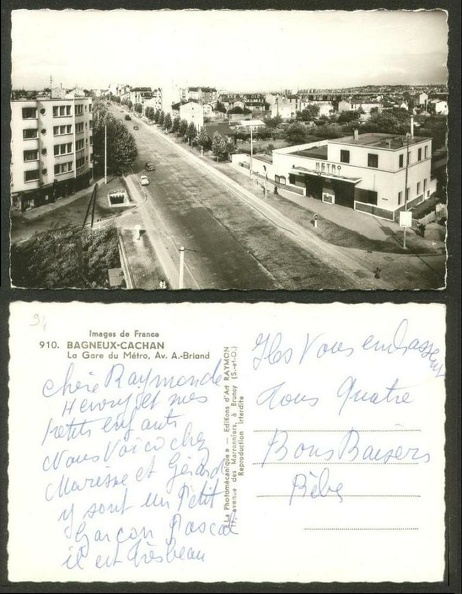 METRO
Images de France
910. BAGNEUX-CACHAN
La Gare du Métro, Av. A.-Briand
chère Raymonde
Henry et mes
petits enfants
Nous Voici chez
Marisse et Gérard
y sont un Petit
Garçon Pascal
il est très beau
"La Photomécanique" — Editions d'Art RAYMON
11, avenue des Marronniers, à Brunoy (S.-et-O.)
Reproduction interdite
Ils Vous embrassent
Tous Quatre
Bons Baisers
Bébé